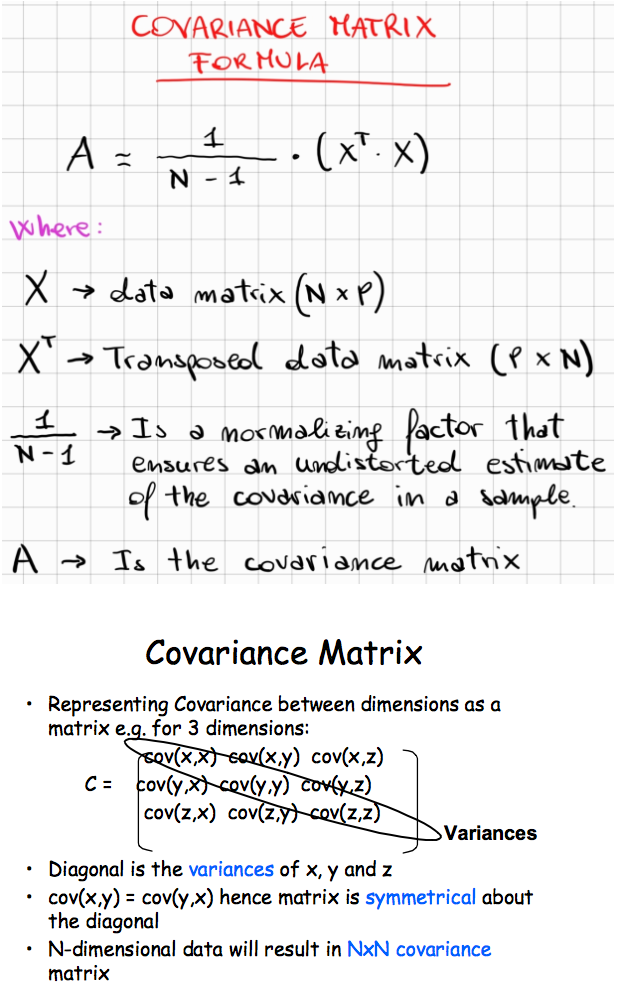 COVARIANCE MATRIX
FORMULA
A = 1/(N - 1) · (X^T · X)
Where:
X → data matrix (N x P)
X^T → Transposed data matrix (P x N)
1/(N - 1) → Is a normalizing factor that
ensures an undistorted estimate
of the covariance in a sample.
A → Is the covariance matrix
Covariance Matrix
• Representing Covariance between dimensions as a
matrix e.g. for 3 dimensions:
cov(x,x) cov(x,y) cov(x,z)
C = cov(y,x) cov(y,y) cov(y,z)
cov(z,x) cov(z,y) cov(z,z)
Variances
• Diagonal is the variances of x, y and z
• cov(x,y) = cov(y,x) hence matrix is symmetrical about
the diagonal
• N-dimensional data will result in NxN covariance
matrix